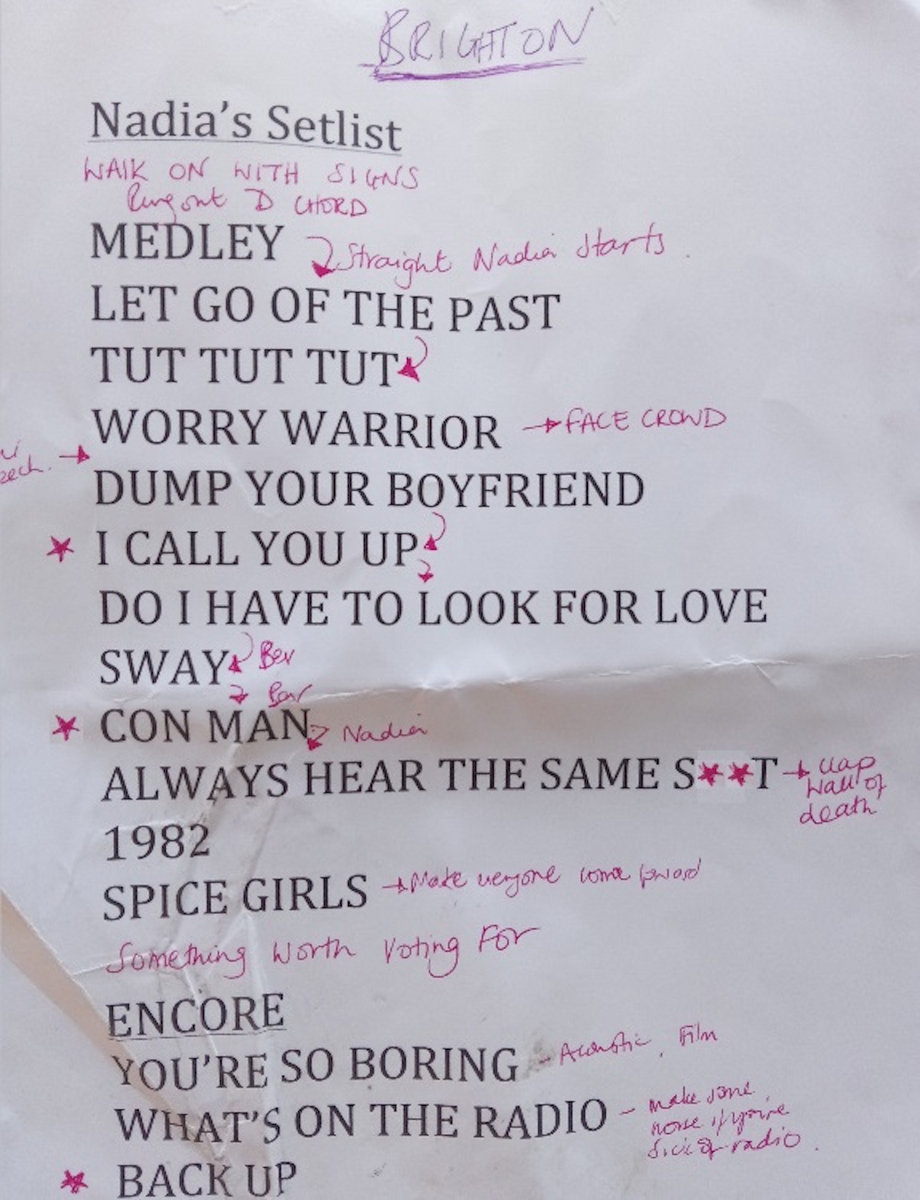 BRIGHTON
Nadia's Setlist
WALK ON WITH SIGNS
Ring out D CHORD
MEDLEY Straight Nadia starts.
LET GO OF THE PAST
TUT TUT TUT
WORRY WARRIOR → FACE CROWD
DUMP YOUR BOYFRIEND
★ I CALL YOU UP
DO I HAVE TO LOOK FOR LOVE
SWAY Bev
Bev
★ CON MAN Nadia
ALWAYS HEAR THE SAME S★★T → clap
wall of
death
1982
SPICE GIRLS → Make everyone come forward
Something Worth Voting For
ENCORE
YOU'RE SO BORING - Acoustic, Film
WHAT'S ON THE RADIO - make some
noise if you're
sick of radio.
★ BACK UP